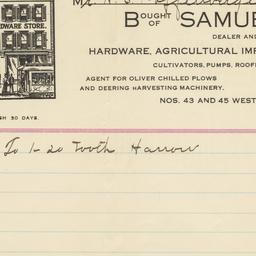 Mr.
BOUGHT OF SAMUE
DWARE STORE.
DEALER AND
HARDWARE, AGRICULTURAL IMP
CULTIVATORS, PUMPS, ROOF
AGENT FOR OLIVER CHILLED PLOWS
AND DEERING HARVESTING MACHINERY.
NOS. 43 AND 45 WEST
SH 30 DAYS.
To 1-20 Tooth Harrow